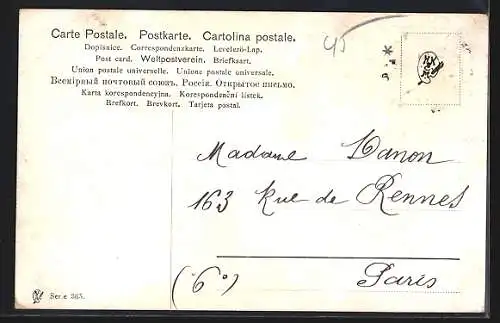 Carte Postale. Postkarte. Cartolina postale.
Dopisnice. Correspondenzkarte. Levelező-Lap.
Post card. Weltpostverein. Briefkaart.
Union postale universelle. Unione postale universale.
Всемірный почтовый союзъ. Россія. Открытое письмо.
Karta korespondencyjna. Korespondenční listek.
Brefkort. Brevkort. Tarjeta postal.
Madame Danon
163 Rue de Rennes
(6°) Paris
Serie 365.